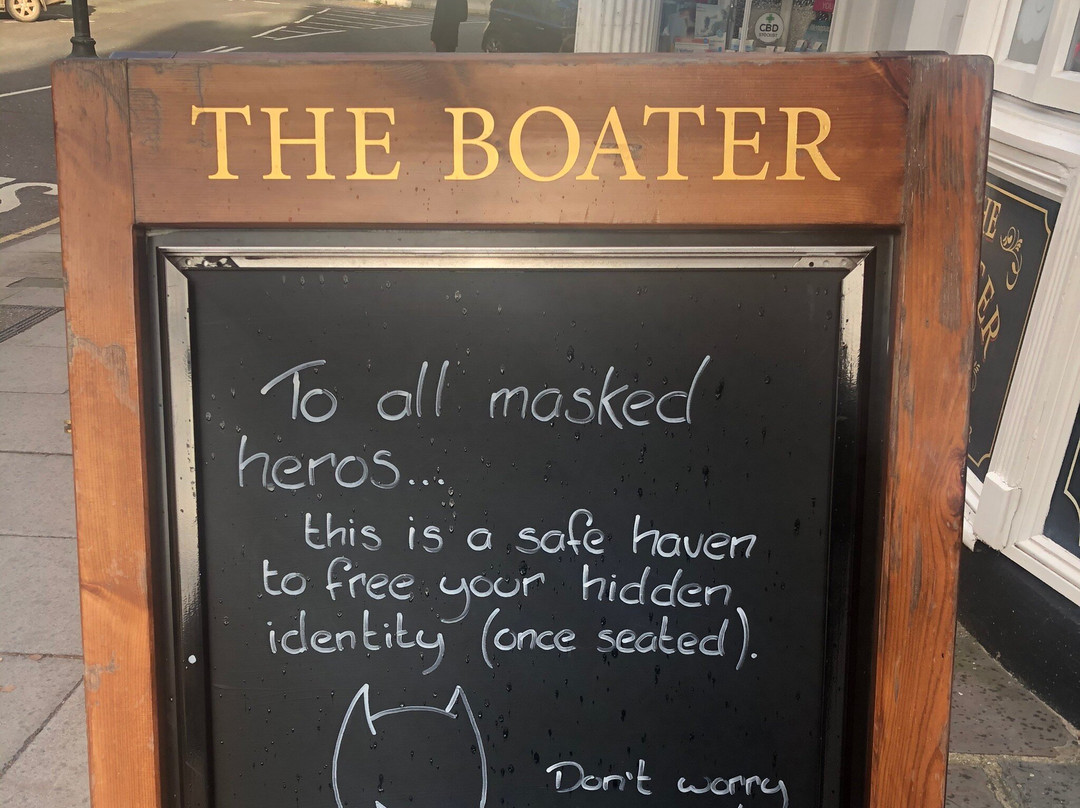 CBD
THE BOATER
To all masked
heros...
this is a safe haven
to free your hidden
identity (once seated).
Don't worry